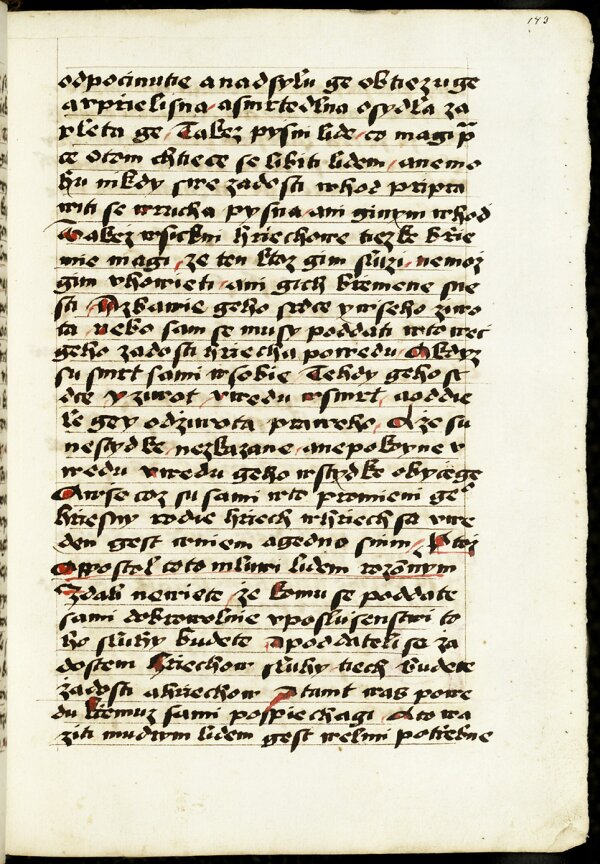 173
odpocinutie a nad sylu ge obtiezuge
a vprielisna a smrtedlna osydla za
pleta ge Takez pysni lide co magi p̄
ce o tom chtiece se libiti lidem a nemo
hu nikdy swe zadosti whod pripra
witi se wrucha pysna ani ginym whod
Takez wsickni hriechowe tiezke brie
mie magi ze ten ktoz gim sluzi nemoz
gim vhowieti ani gich bremene sne
sti A zbawie geho srdce y wseho ziwo
ta nebo sam se musy poddati w to wec
geho zadosti hriecha powedu A kdyz
su smrt sami w sobie Tehdy geho sr
dce y ziwot vwedu w smrt a oddie
le gey od ziwota praweho A ze su
nestydke nezkazane a nepokoyne v
wedu vwedu geho w stydke obycege
A wse coz su sami w to promieni geº
hriesny rodie hriech w hriech sa vwe
den gest w niem a gedno s nim
Appostol coto mluwi lidem rozomnym
Zdali newiete ze komu se poddate
sami dobrowolnie v poslusenstwi to
ho sluhy budete A poddateli se za
dostem hriechow sluhy tiech budete
zadosti a hriechow A tamt was powe
du k czemuz sami pospiechagi A to wa
ziti mudrym lidem gest welmi potrebne